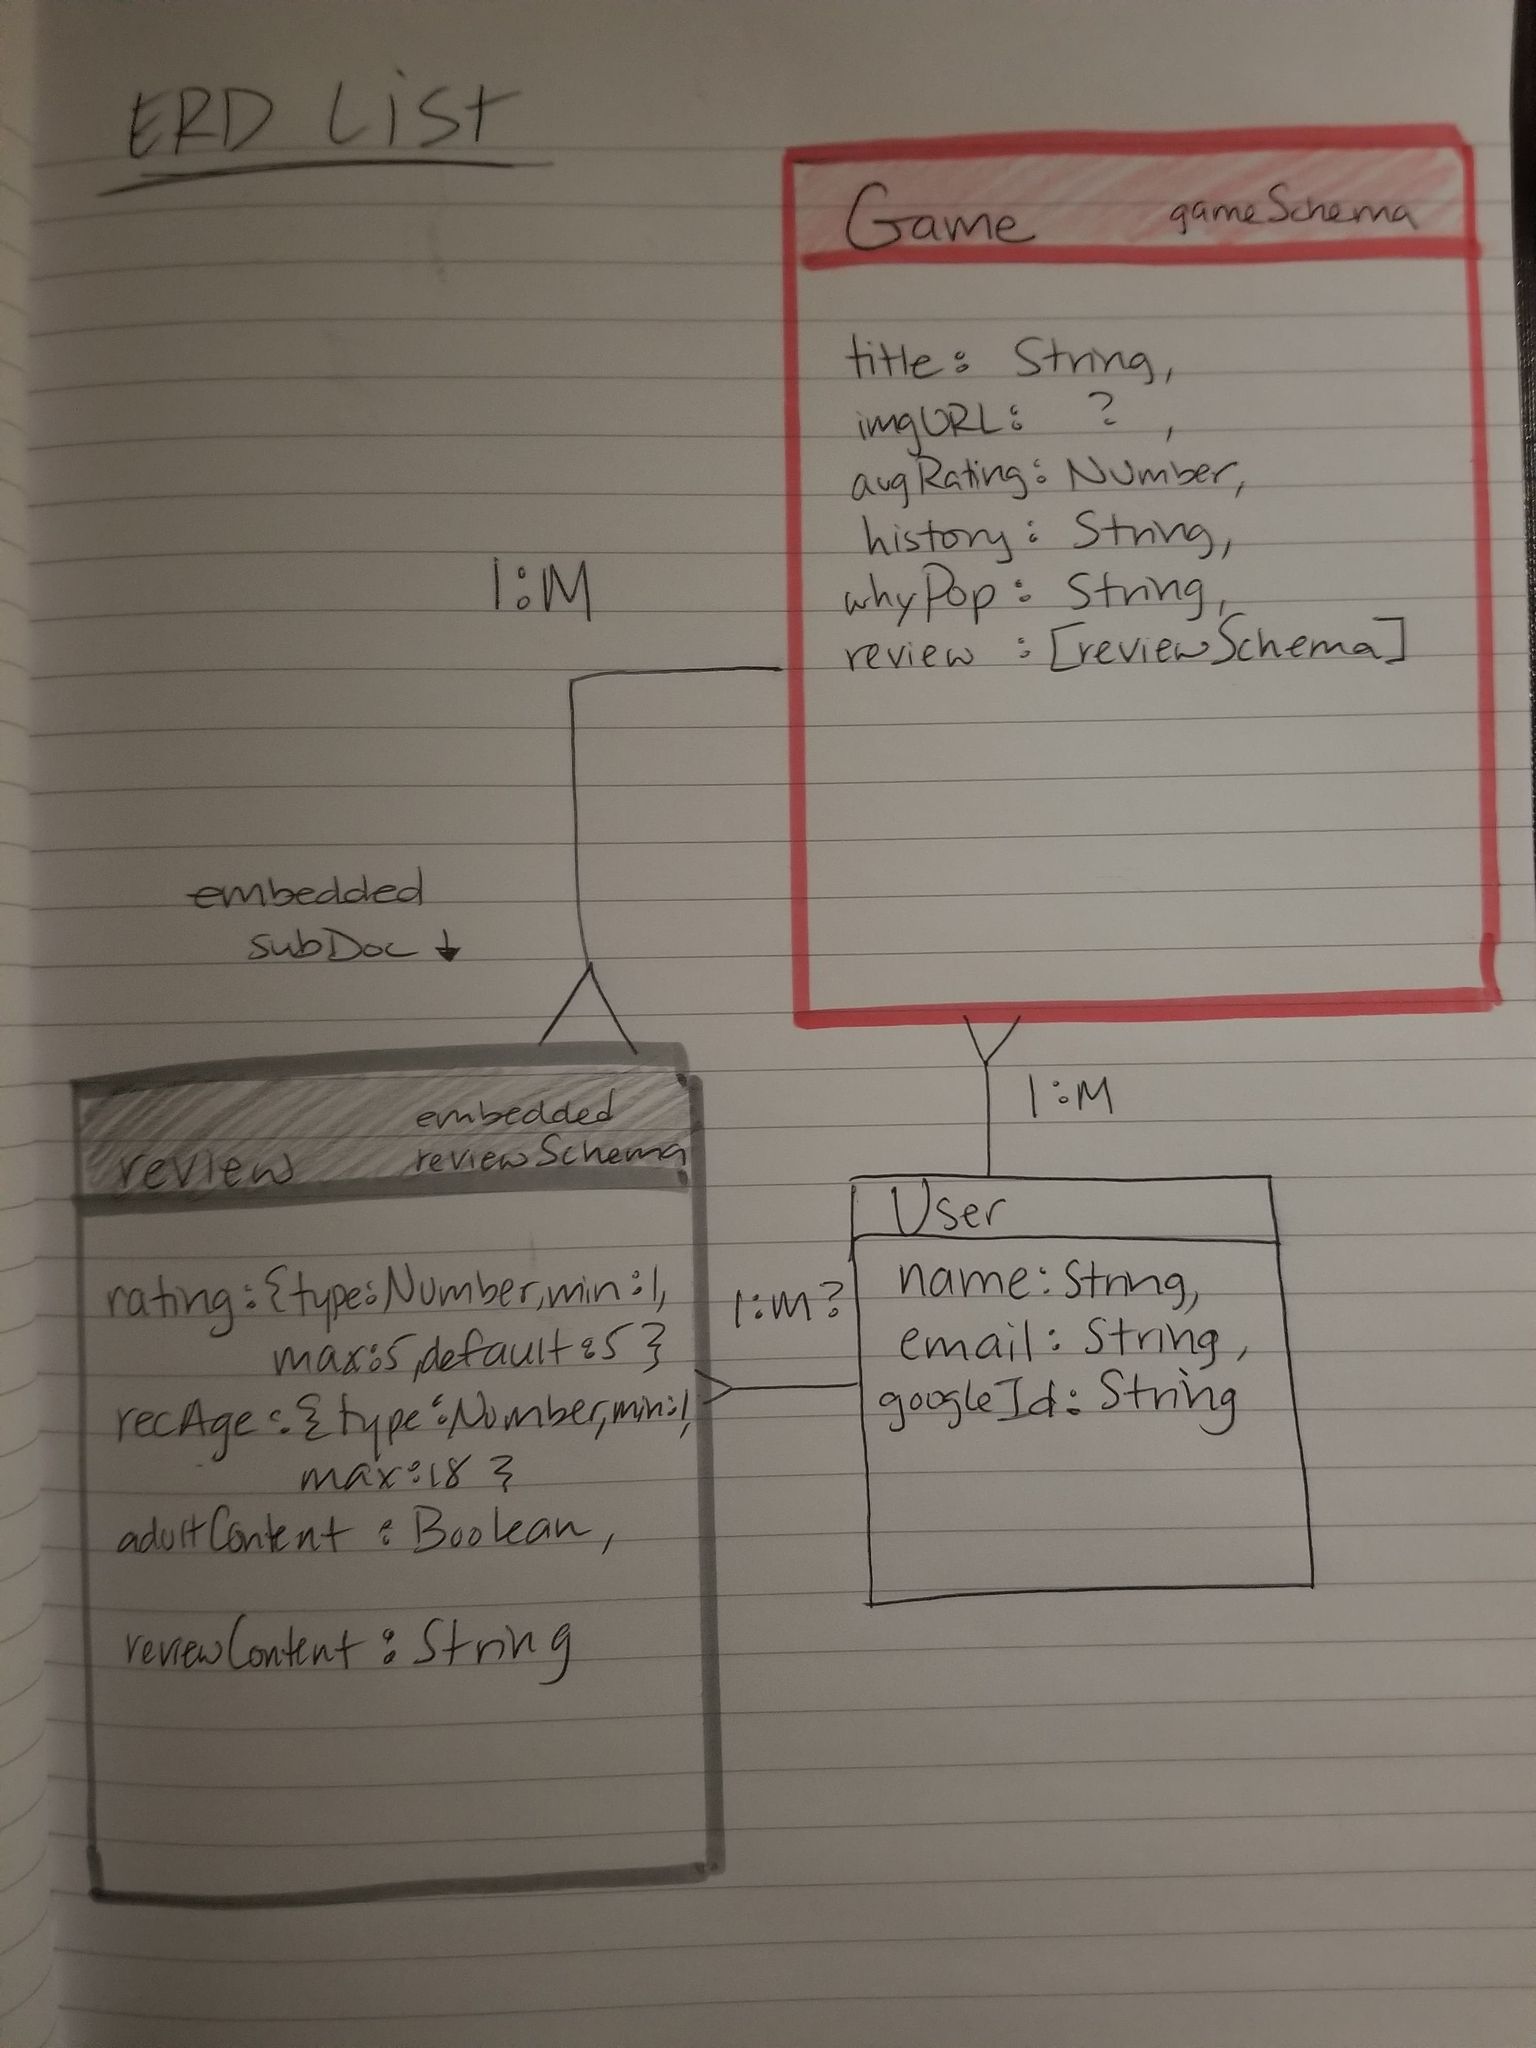 ERD LIST
Game gameSchema
title: String,
imgURL: ? ,
avgRating: Number,
history: String,
whyPop: String,
review : [reviewSchema]
1:M
embedded
subDoc ↓
1:M
review embedded
reviewSchema
rating:{type:Number,min:1,
max:5,default:5}
recAge:{type:Number,min:1,
max:18}
adultContent : Boolean,
reviewContent : String
1:M?
User
name: String,
email: String,
googleId: String